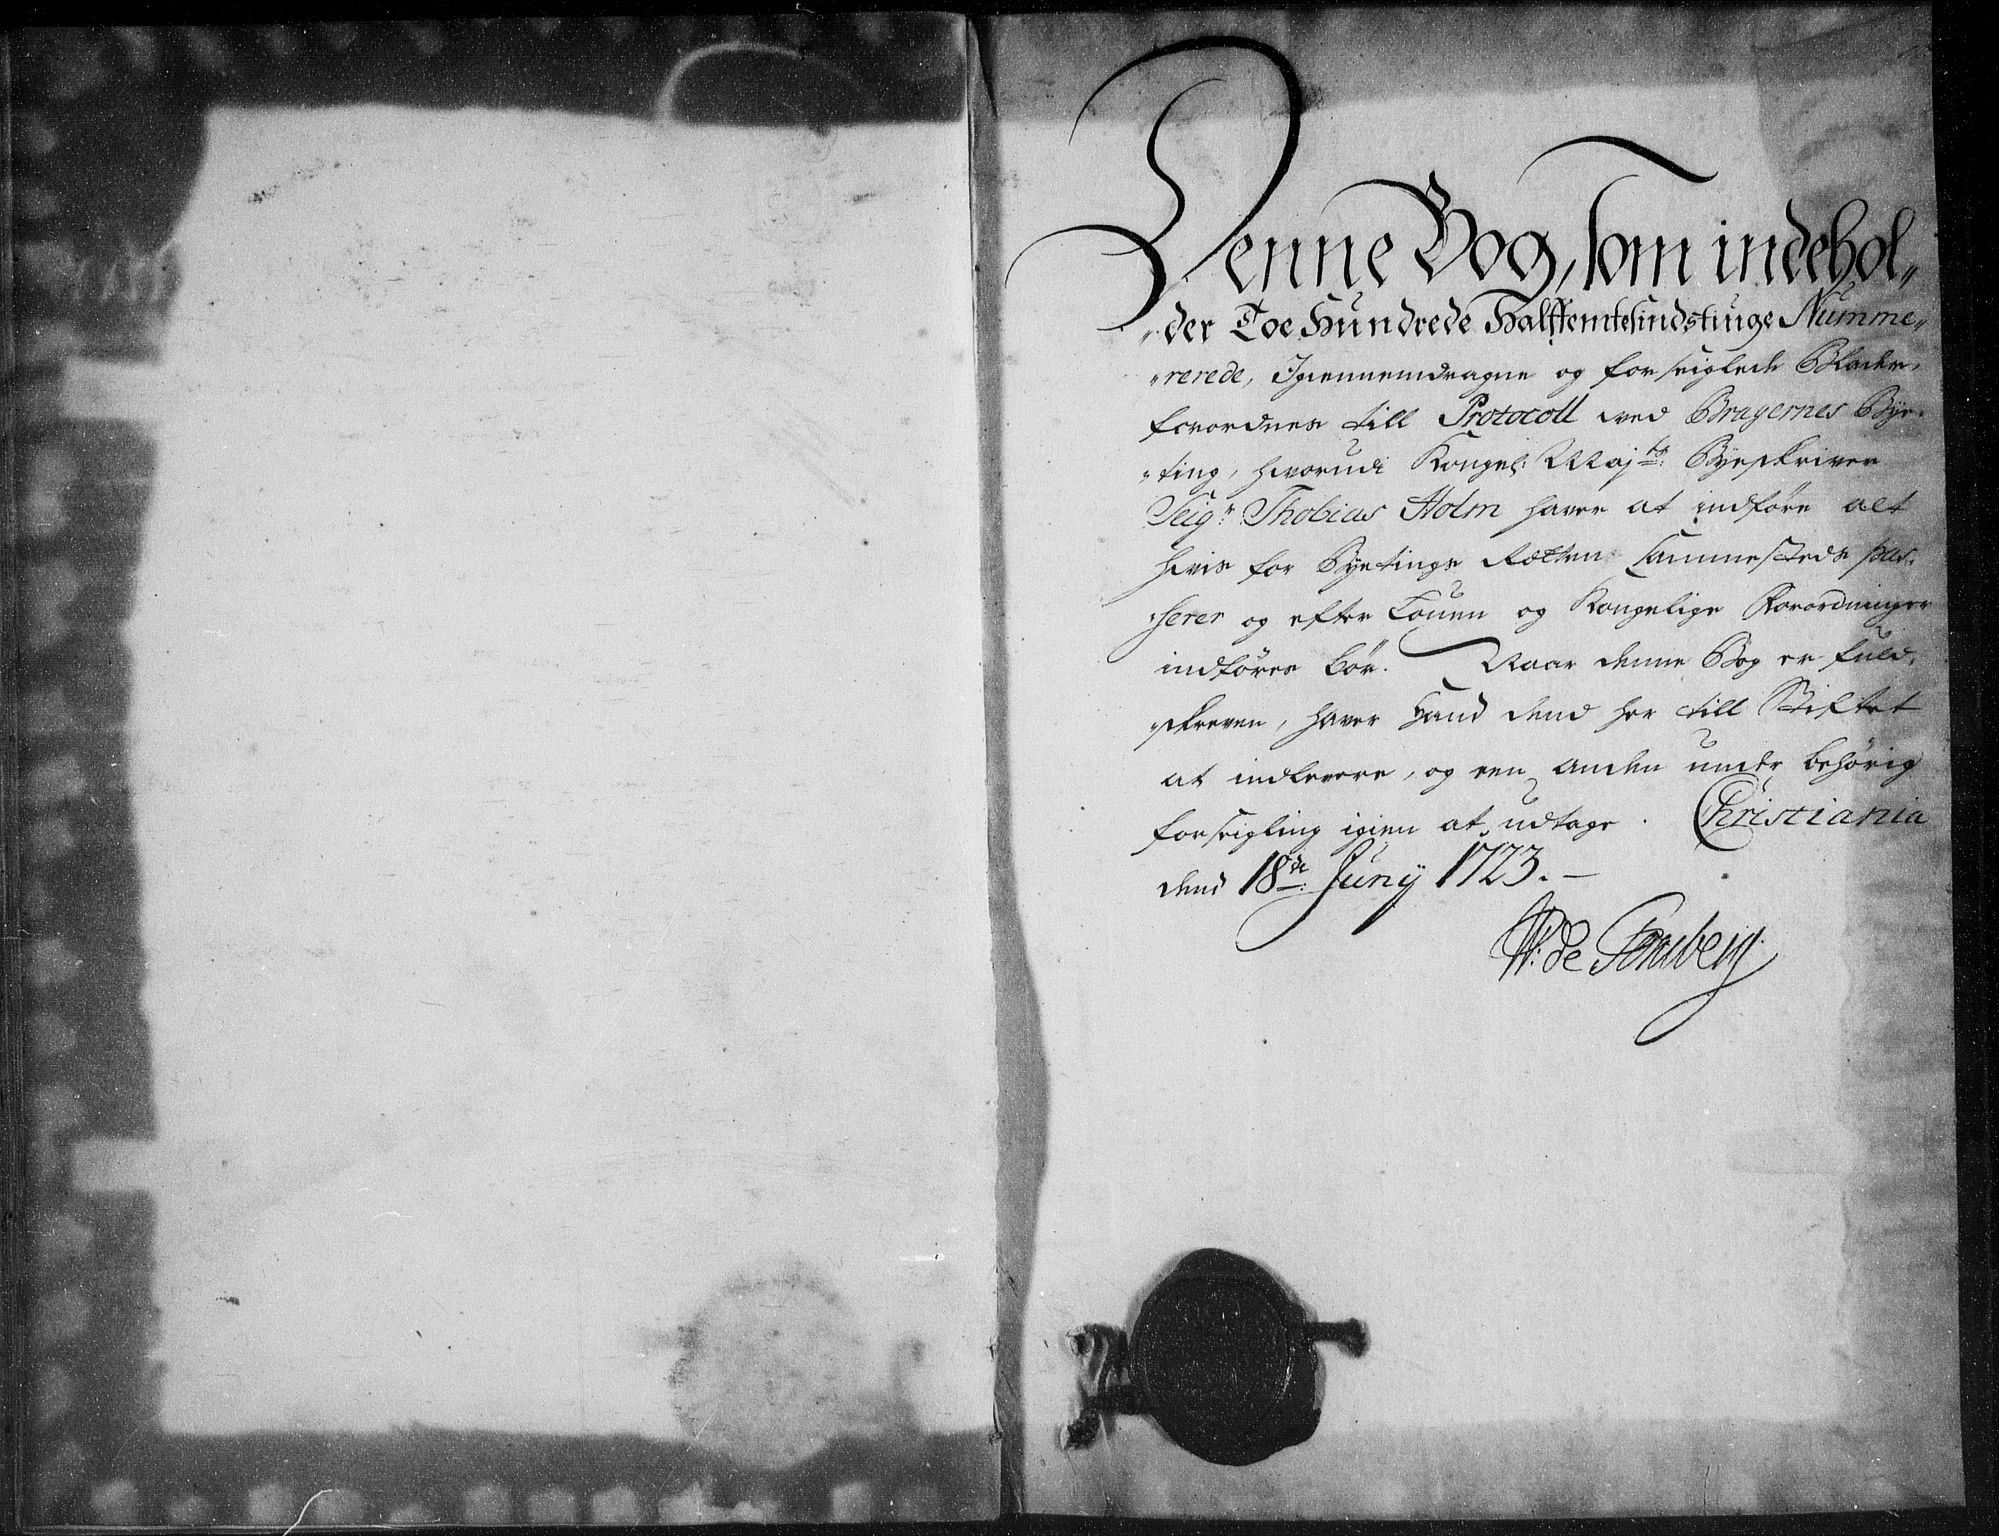 Denne Bog, som indehol„
„der Toe Hundrede Halffemtesindstiuge Numme„
„rerede, Igiennemdragne og forseiglede Blader,
forordnes till Protocoll ved Bragernes Bye„
„ting, hvorudi Kongel: Maj:ts: Byeskriver
Seig:r Thobias Holm haver at indføre alt
hvis for Byetings Retten sammesteds pas„
„serer og efter Louen og Kongelige Forordninger
indføres bør. Naar denne Bog er fuld„
„skreven, haver Hand dend her till Stiftet
at indlevere, og een anden under behørig
forseigling igien at udtage. Christiania
dend 18de: Juny 1723.
W: de Tonsberg